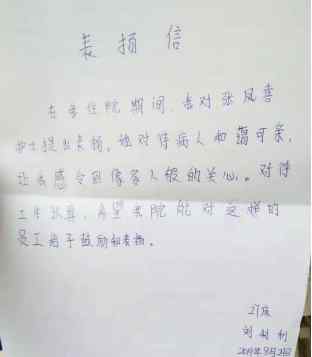 表扬信
在我住院期间,要对张凤喜
护士提出表扬。她对待病人和蔼可亲,
让我感受到像家人般的关心。对待
工作认真,希望贵院能对这样的
员工给予鼓励和表扬。
21床
刘利
2019年9月21日